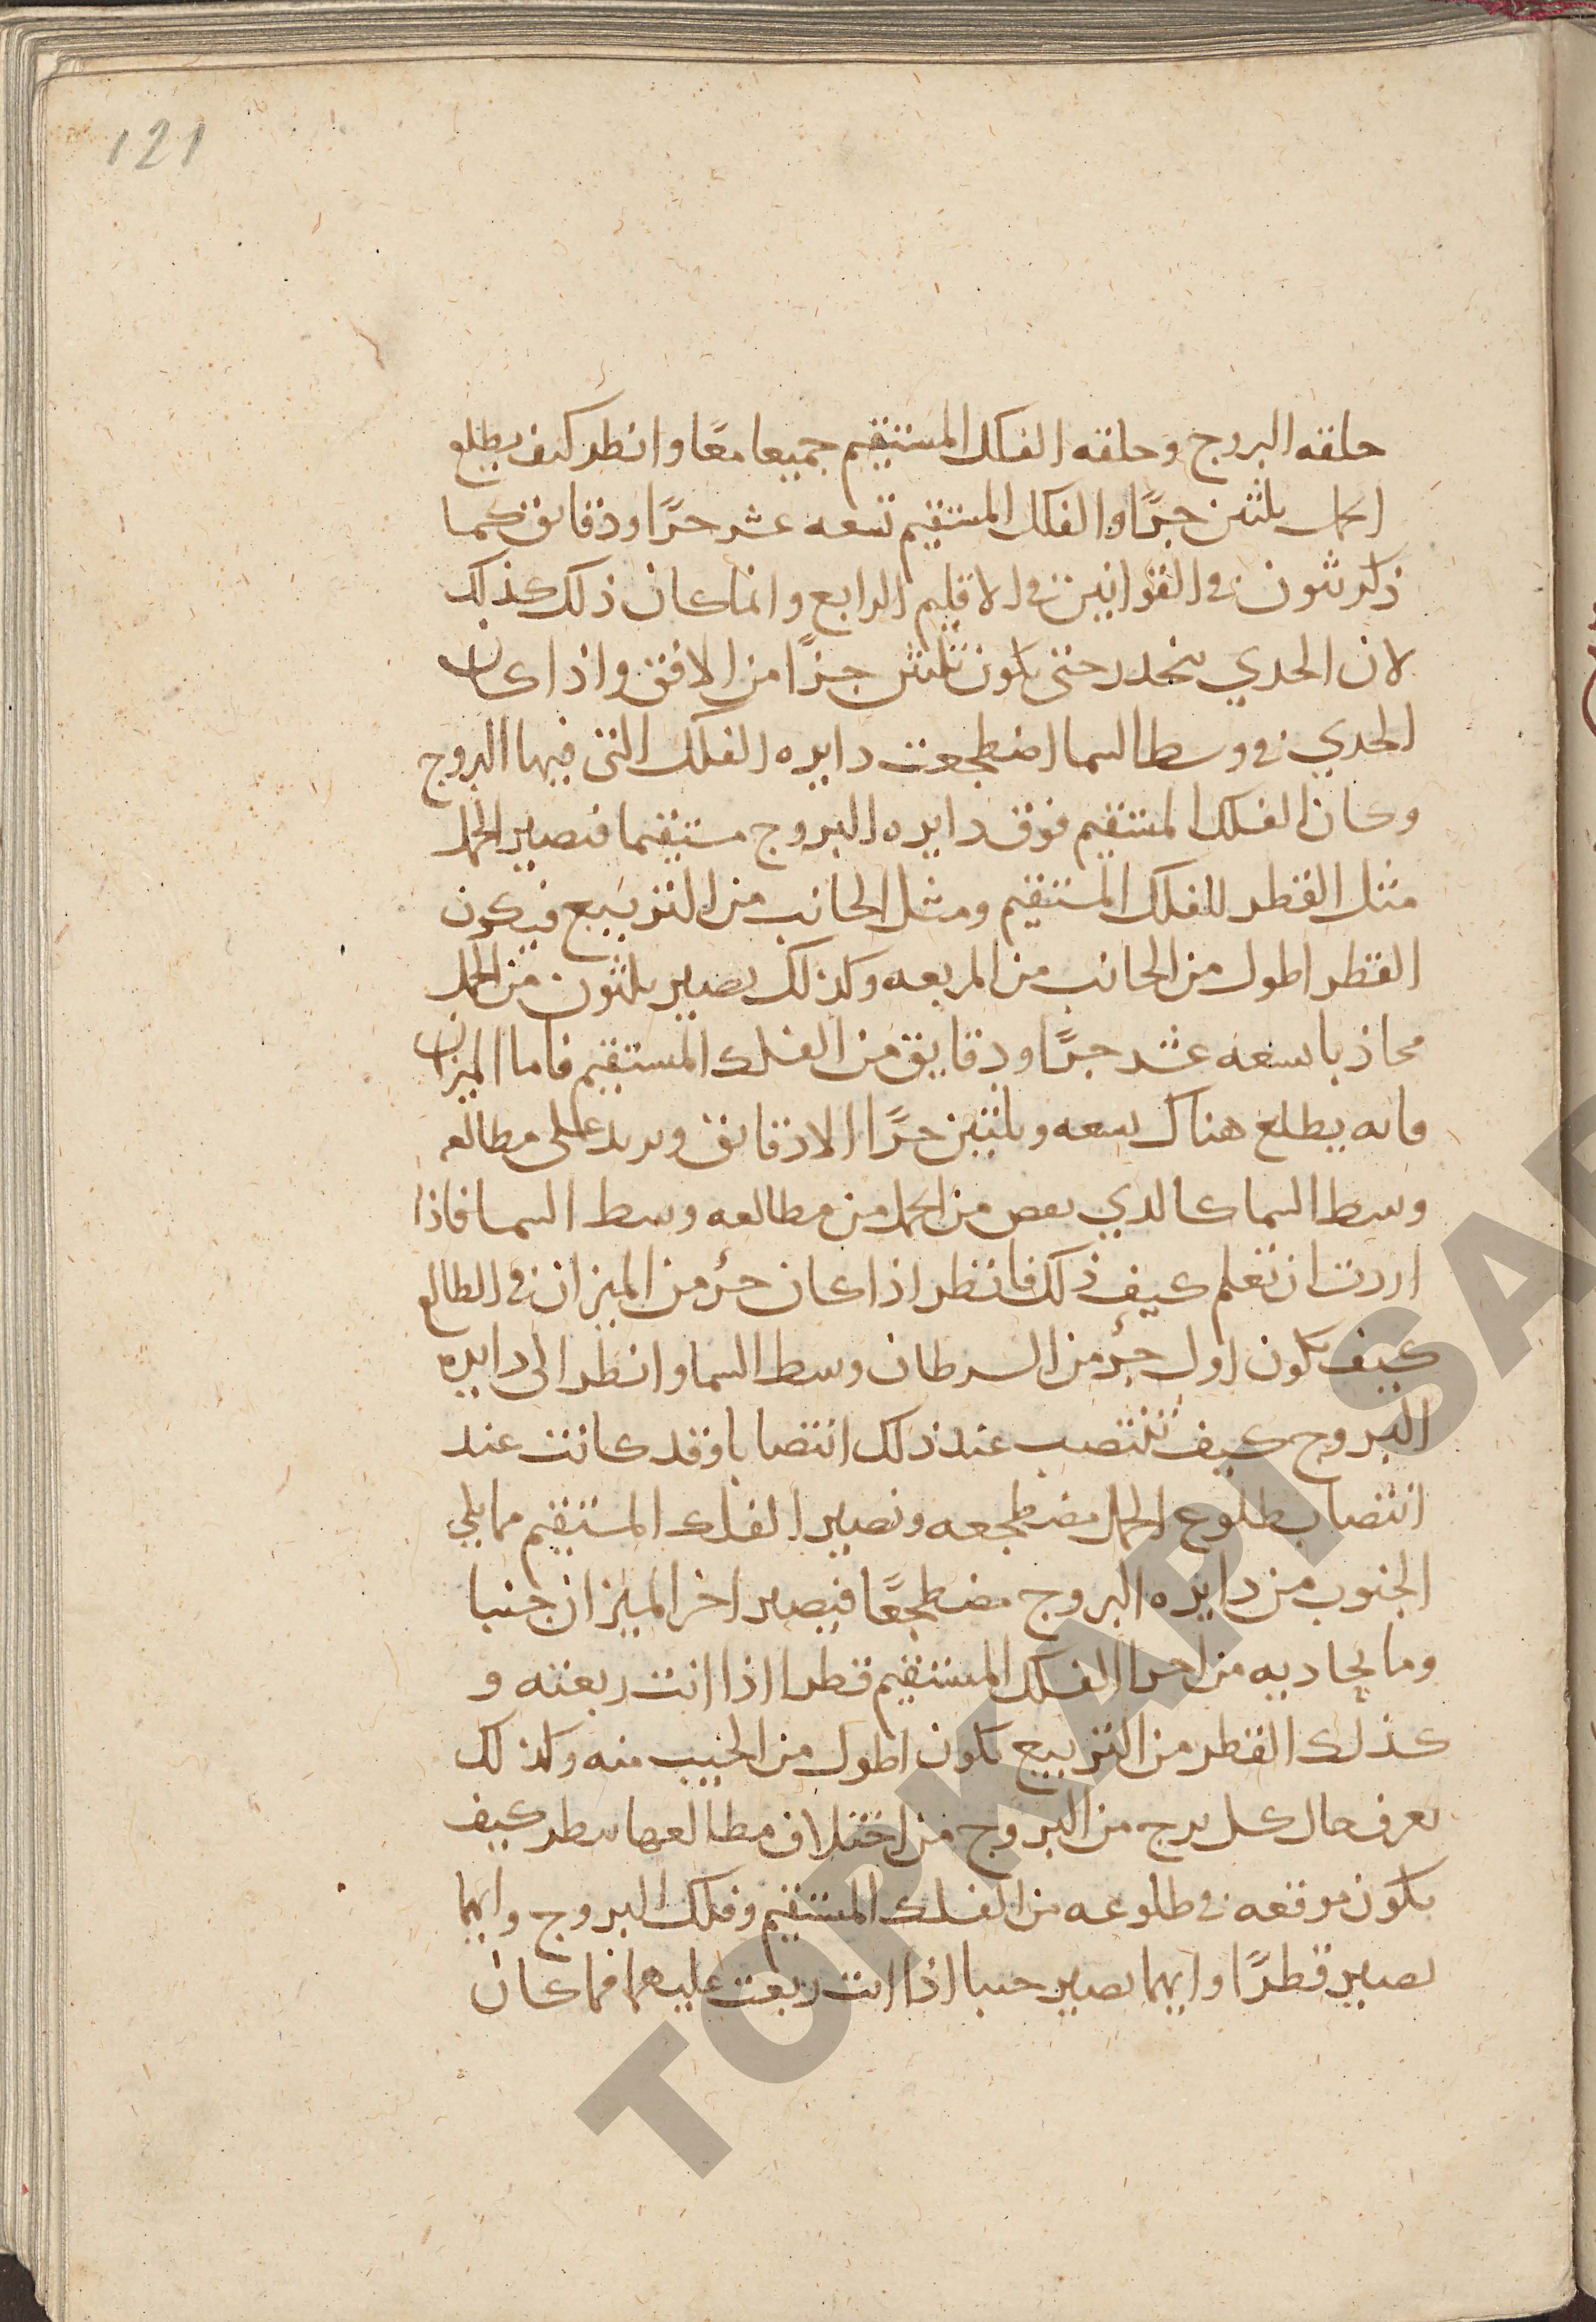 121
حلقه البروج وحلقه الفلك المستقيم جميعا معًا وانظر كيف يطلع
الحمل بلثين جزًا والفلك المستقيم تسعه عشر جزًا ودقايق كما
ذكر ثون في القوانين في الاقليم الرابع وانما كان ذلك كذلك
لان الجدي ينحدر حتى يكون ثلثين جزًا من الافق واذا كان
الجدي في وسط السما اضطجعت دايره الفلك التي فيها البروج
وكان الفلك المستقيم فوق دايره البروج مستقيما فتصير الحمل
مثل القطر للفلك المستقيم ومثل الجانب من التربيع فيكون
القطر اطول من الجانب من المربعه وكذلك يصير ثلثون من الحمل
محاذيا تسعه عشر جزًا ودقايق من الفلك المستقيم فاما الميزان
فانه يطلع هناك تسعه وثلثين جزًا الا دقايق ويزيد على مطالعه
وسط السما كالذي نقص من الحمل من مطالعه وسط السما فاذا
اردت ان تعلم كيف ذلك فانظر اذا كان جزء من الميزان في الطالع
كيف يكون اول جزء من السرطان وسط السما وانظر الى دايره
البروج كيف تنتصب عند ذلك انتصابا وقد كانت عند
انتصاب طلوع الحمل مضطجعه وتصير الفلك المستقيم مما يلي
الجنوب من دايره البروج مضطجعًا فيصير اخر الميزان جنبا
وما يحاذيه من اجزا الفلك المستقيم قطرا اذا انت ربعته و
كذلك القطر من التربيع يكون اطول من الجنب منه وكذلك
تعرف حال كل برج من البروج من اختلاف مطالعها تنظر كيف
يكون موقعه في طلوعه من الفلك المستقيم وفلك البروج وايهما
يصير قطرًا وايهما يصير جنبا اذا انت ربعت عليهما فما كان
TOPKAPI SA